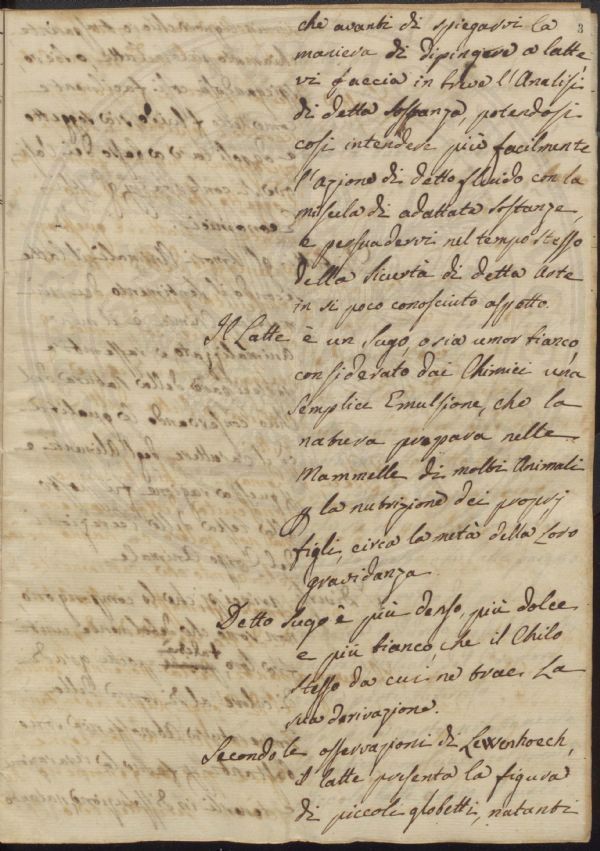 3
che avanti di spiegarvi la
maniera di dipingere a latte
vi faccia in breve l'Analisi
di detta sostanza, potendosi
così intendere più facilmente
l'azione di detto fluido con la
miscela di adattate sostanze,
e persuadervi nel tempo stesso
della sicurtà di detta Arte
in si poco conosciuto aspetto.
Il Latte è un Sugo, o sia umor bianco,
considerato dai Chimici una
Semplice Emulsione, che la
natura prepara nelle
Mammelle di molti Animali
ꝑ la nutrizione dei proprj
figli, circa la metà della Loro
gravidanza.
Detto Sugo è più denso, più dolce
e più bianco, che il Chilo
stesso da cui ne trae La
sua derivazione.
Secondo le osservazioni di Lewenhoech,
il latte presenta la figura
di piccoli globetti, natanti